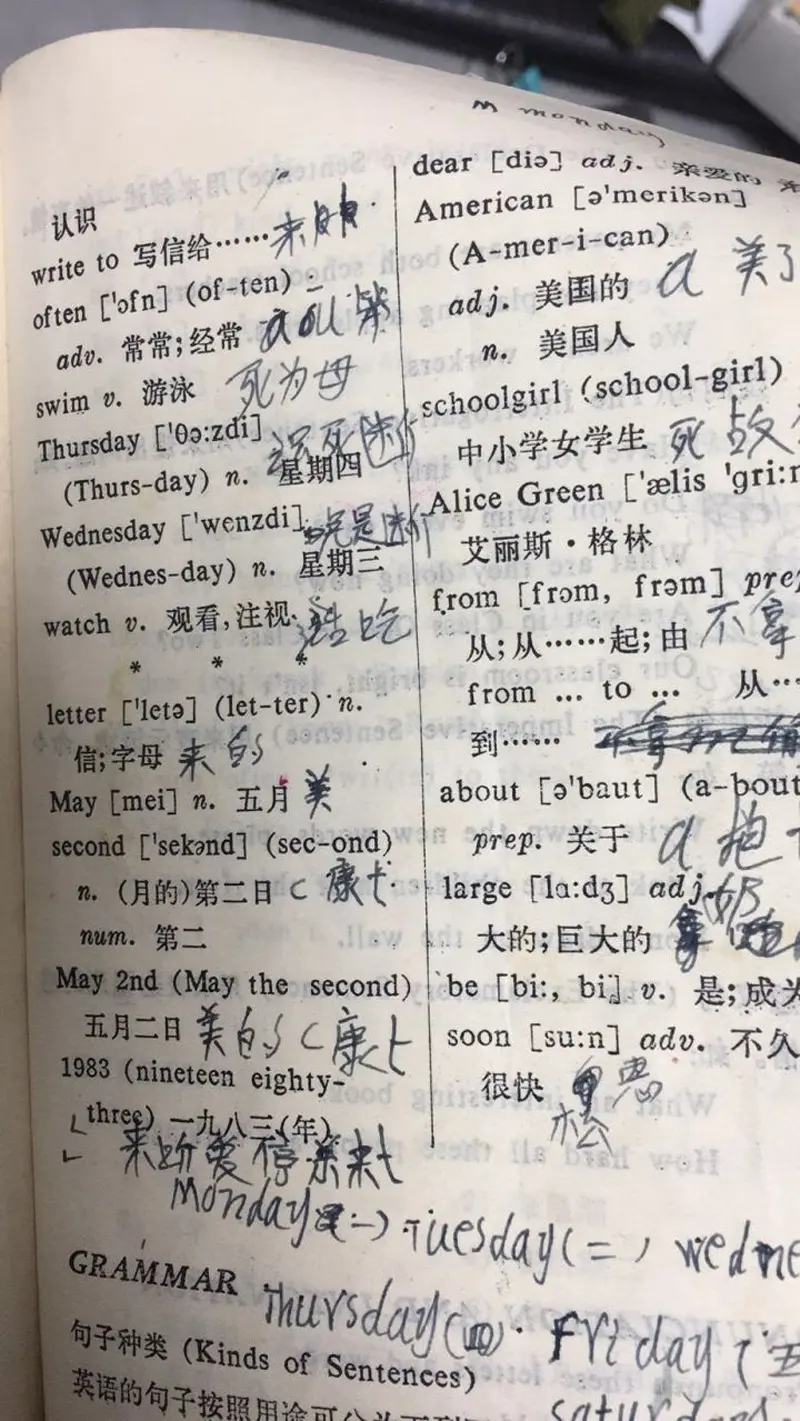 M monday
认识
write to 写信给……来
often ['ɔfn] (of-ten)
adv. 常常;经常
swim v. 游泳 死为母
Thursday ['θə:zdi]
(Thurs-day) n. 星期四
Wednesday ['wenzdi]
(Wednes-day) n. 星期三
watch v. 观看,注视
* * *
letter ['letə] (let-ter) n.
信;字母 来的
May [mei] n. 五月 美
second ['sekənd] (sec-ond)
n. (月的)第二日 C康七
num. 第二
May 2nd (May the second)
五月二日 美的C康七
1983 (nineteen eighty-
three) 一九八三(年)
Monday (一) Tuesday (二) wedne
GRAMMAR Thursday (四) Friday (五
句子种类 (Kinds of Sentences)
saturday
英语的句子按照用途可分为下列
dear [diə] adj. 亲爱的
American [ə'merikən]
(A-mer-i-can)
adj. 美国的 a 美了
n. 美国人
schoolgirl (school-girl)
中小学女学生 死
Alice Green ['ælis 'gri:n
艾丽斯·格林
from [frɔm, frəm] prep
从;从……起;由 不拿
from ... to ... 从…
到……
about [ə'baut] (a-bout
prep. 关于 a 抱
large [lɑ:dʒ] adj.
大的;巨大的
be [bi:, bi] v. 是;成为
soon [su:n] adv. 不久
很快
松